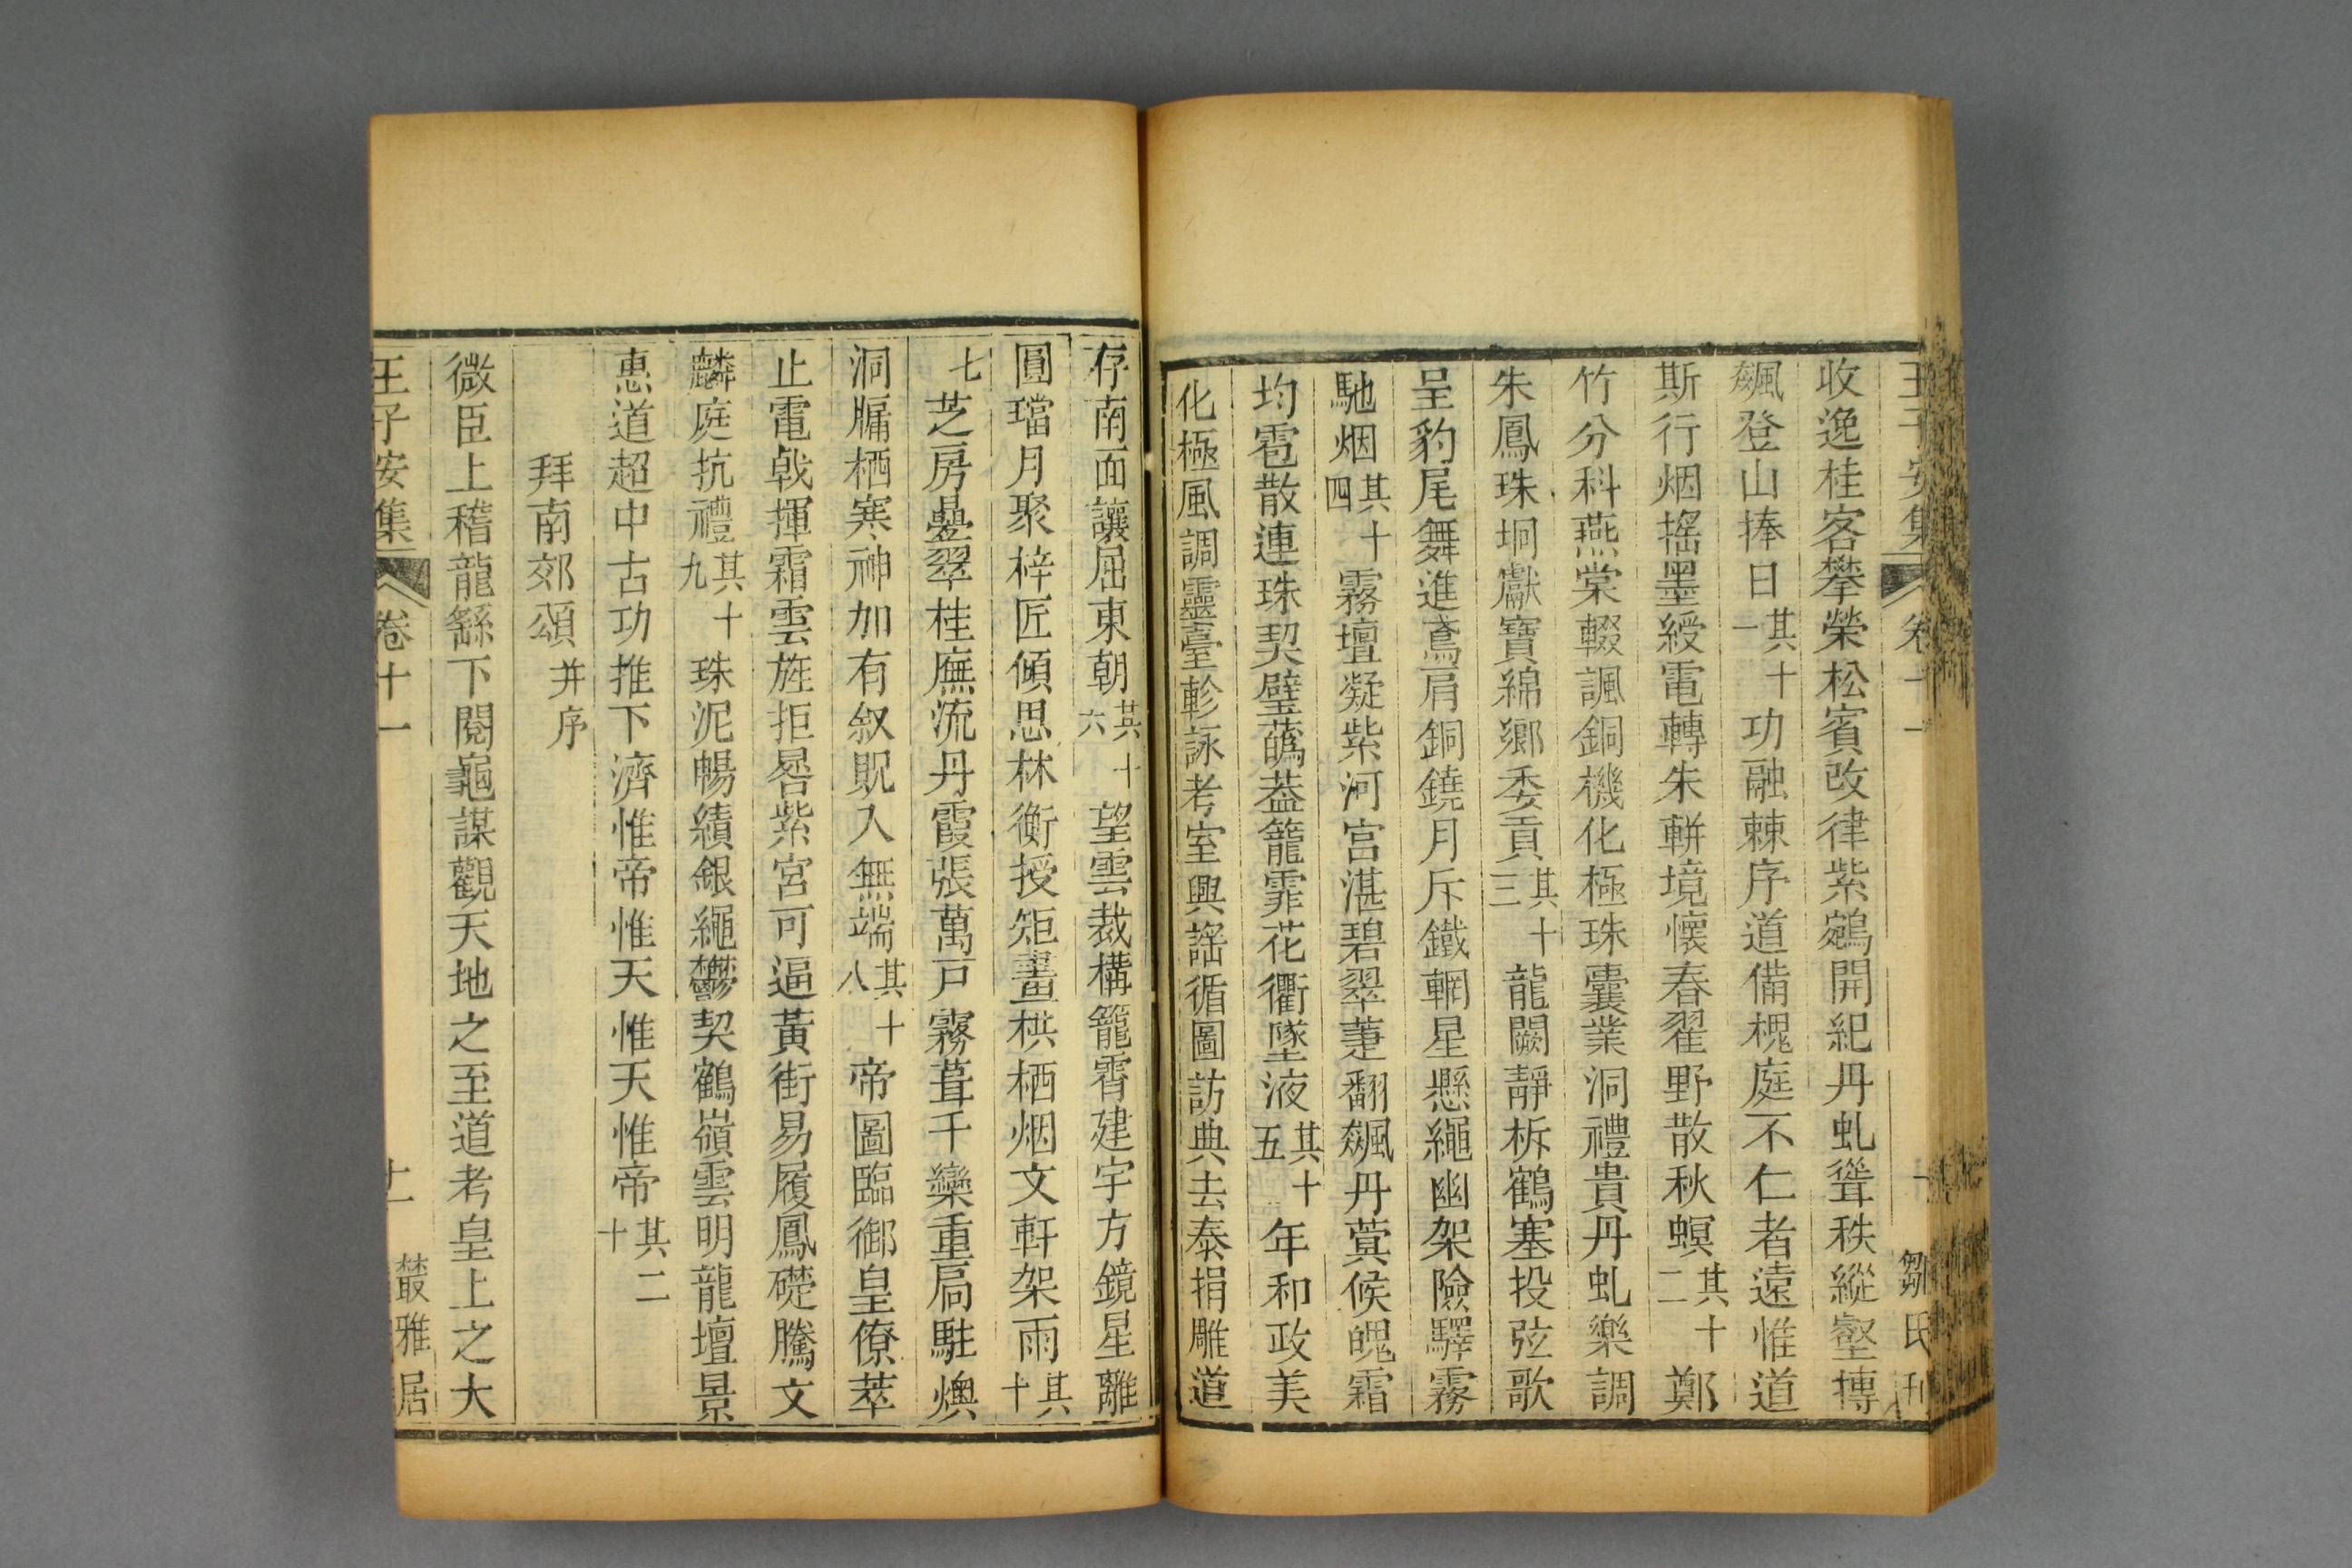 王子安集 卷十一 十 鄒氏刊
收逸桂客攀榮松賓改律紫鵷開紀丹虬聳秩縱壑摶
飆登山捧日其十一功融棘序道備槐庭不仁者遠惟道
斯行烟搖墨綬電轉朱軿境懷春翟野散秋螟其十二鄭
竹分科燕棠輟諷銅機化極珠囊業洞禮貴丹虬樂調
朱鳳珠坰獻寶綿鄉委貢其十三龍闕靜柝鶴塞投弦歌
呈豹尾舞進鳶肩銅鐃月斥鐵輞星懸繩幽架險驛霧
馳烟其十四霧壇凝紫河宮湛碧翠萐翻飆丹蓂候魄霜
均雹散連珠契璧蘤葢籠霏花衢墜液其十五年和政美
化極風調靈臺軫詠考室興謠循圖訪典去泰捐雕道
存南面讓屈東朝其十六望雲裁構籠霄建宇方鏡星離
圓璫月聚梓匠傾思林衡授矩畫栱栖烟文軒架雨其十
七芝房疊翠桂廡流丹霞張萬戸霧葺千欒重扃駐燠
洞牖栖寒神加有叙貺入無端其十八帝圖臨御皇僚萃
止電戟揮霜雲旌拒晷紫宮可逼黃街易履鳳礎騰文
麟庭抗禮其十九珠泥暢績銀繩鬱契鶴嶺雲明龍壇景
惠道超中古功推下濟惟帝惟天惟天惟帝其二十
拜南郊頌并序
微臣上稽龍繇下閱龜謀觀天地之至道考皇上之大
王子安集 卷十一 十一 叢雅居